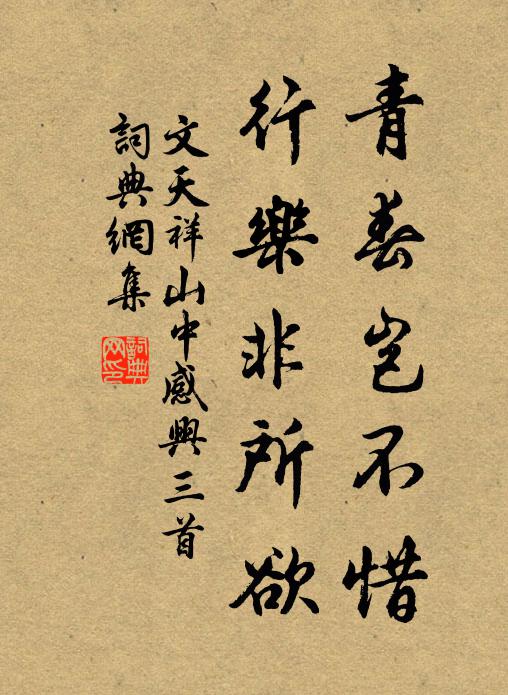 青春岂不惜
行樂非所欲
文天祥山中感興三首
詞典網集
詞典網印